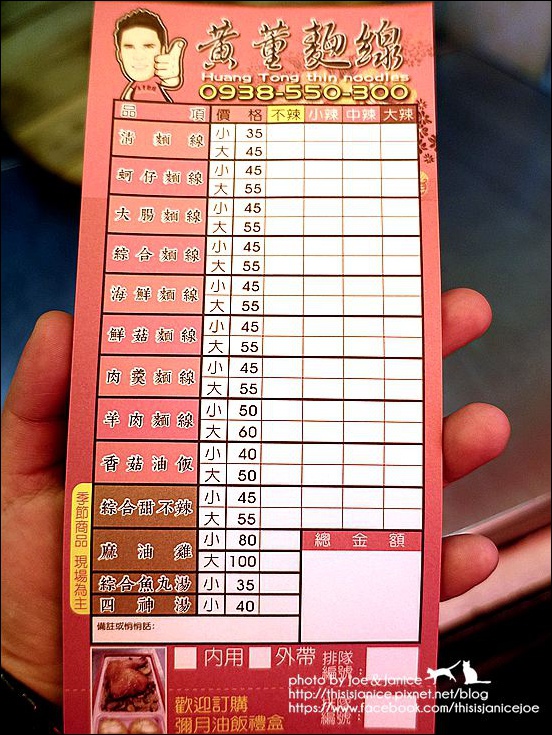 黃董麵線
Huang Tong thin noodles
0938-550-300
品項 價格 不辣 小辣 中辣 大辣
清麵線 小 35
大 45
蚵仔麵線 小 45
大 55
大腸麵線 小 45
大 55
綜合麵線 小 45
大 55
海鮮麵線 小 45
大 55
鮮菇麵線 小 45
大 55
肉羹麵線 小 45
大 55
羊肉麵線 小 50
大 60
香菇油飯 小 40
大 50
季節商品 現場為主
綜合甜不辣 小 45
大 55
麻油雞 小 80
大 100
總金額
綜合魚丸湯 小 35
四神湯 小 40
備註或悄悄話:
內用 外帶 排隊編號:
歡迎訂購
彌月油飯禮盒
排隊編號:
photo by Joe & Janice
http://thisisjanice.pixnet.net/blog
https://www.facebook.com/thisisjanicejoe